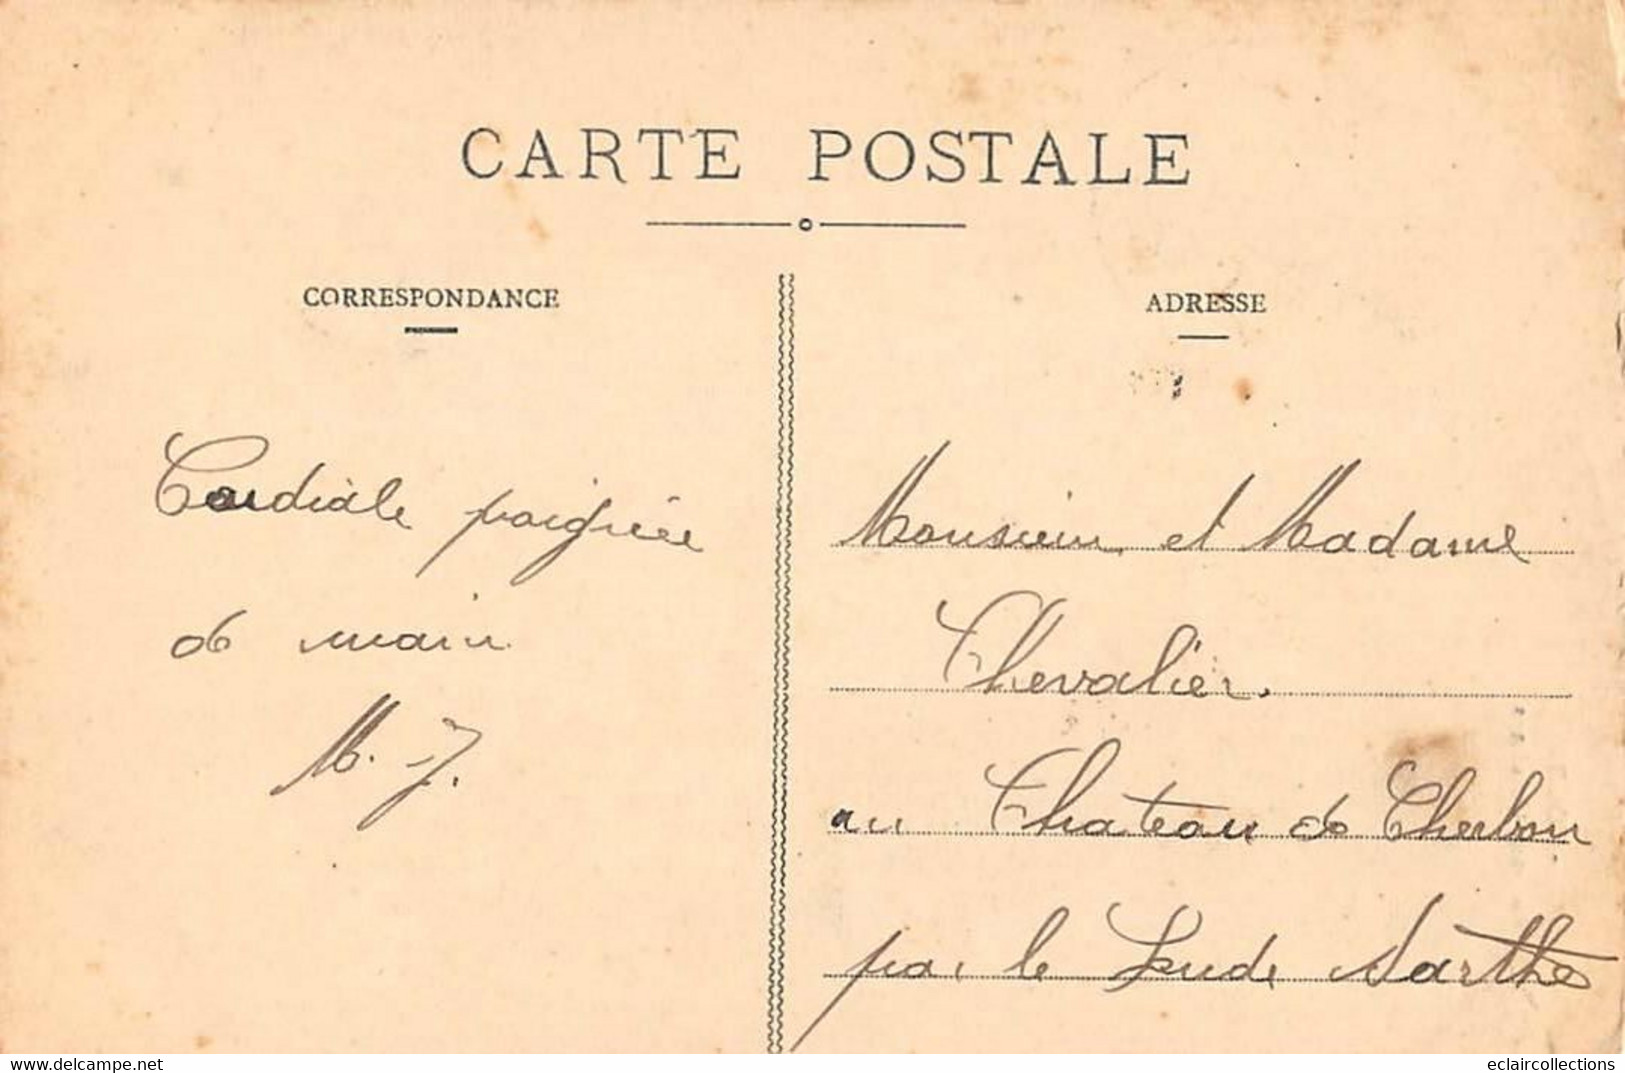 CARTE POSTALE
CORRESPONDANCE
ADRESSE
Cordiale poignée
de main
M. J.
Monsieur et Madame
Chevalier
au Chateau de Cherbon
par le Lude Sarthe
delcampe.net
eclaircollections